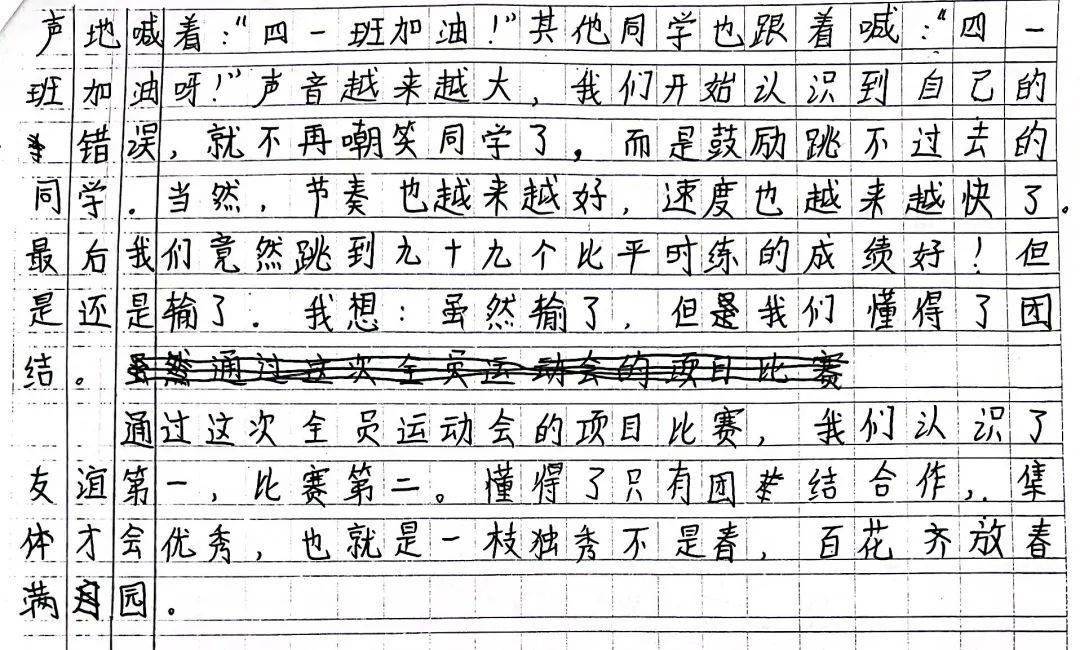 声地喊着:“四一班加油!”其他同学也跟着喊:“四一
班加油呀!”声音越来越大,我们开始认识到自己的
错误,就不再嘲笑同学了,而是鼓励跳不过去的
同学.当然,节奏也越来越好,速度也越来越快了。
最后我们竟然跳到九十九个比平时练的成绩好!但
是还是输了.我想:虽然输了,但是我们懂得了团
结。虽然通过这次全员运动会的项目比赛
通过这次全员运动会的项目比赛,我们认识了
友谊第一,比赛第二。懂得了只有团结合作,集
体才会优秀,也就是一枝独秀不是春,百花齐放春
满园。